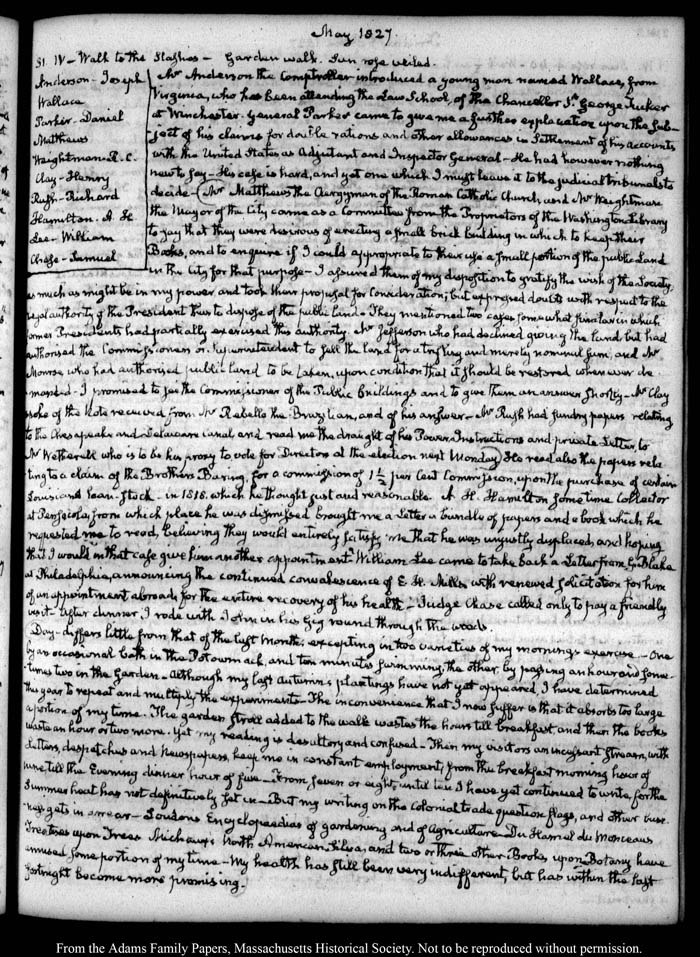 May 1827.
31. IV – Walk to the Stashes – Garden walk. Sun rose veiled.
Anderson - Joseph
Wallace
Parker - Daniel
Matthews
Weightman R. C.
Clay - Henry
Rush - Richard
Hamilton. A. H.
Lee - William
Chase - Samuel
Mr Anderson the Comptroller introduced a young man named Wallace, from
Virginia, who has been attending the Law School, of the Chancellor St George Tucker
at Winchester. General Parker came to give me a further explanation upon the sub-
ject of his claims for double rations and other allowances in Settlement of his accounts
with the United States as Adjutant and Inspector General – He had however nothing
new to say – His case is hard, and yet one which I must leave it to the judicial tribunals to
decide – Mr Matthews the Clergyman of the Roman Catholic Church, and Mr Weightman
the Mayor of the City came as a Committee from the Proprietors of the Washington Library
to say that they were desirous of erecting a small brick building in which to keep their
Books, and to enquire if I could appropriate to their use a small portion of the public Land
in the City for that purpose – I assured them of my disposition to gratify the wish of the Society,
as much as might be in my power and took their proposal for consideration; but expressed doubts with respect to the
legal authority of the President thus to dispose of the public land. They mentioned two cases somewhat similar in which
former Presidents had partially exercised this authority. Mr Jefferson who had declined giving the land but had
authorised the Commissioners or Superintendent to sell the land for a trifling and merely nominal sum, and Mr
Monroe who had authorised public land to be taken, upon condition that it should be restored when ever de-
manded – I promised to see the Commissioner of the Public Buildings and to give them an answer shortly – Mr Clay
spoke of the Note received from Mr Rebello the Brazilian, and of his answer – Mr Rush had sundry papers relating
to the Chesapeake and Delaware canal and read me the draught of his Power, Instructions and private Letter, to
Mr Wetherell who is to be his proxy to vote for Directors at the election next Monday. He read also the papers rela-
ting to a claim of the Brothers Baring, for a commission of 1½ per Cent Commission, upon the purchase of certain
Louisiana Loan-stock – in 1818. which he thought just and reasonable. A. H. Hamilton sometime Collector
at Pensacola, from which place he was dismissed brought me a Letter a bundle of papers and a book which he
requested me to read, believing they would entirely satisfy me that he was unjustly displaced, and hoping
that I would in that case give him another appointment. William Lee came to take back a Letter from G. Blake
at Philadelphia, announcing the continued convalescence of E. H. Mills, with renewed solicitation for him
of an appointment abroad, for the entire recovery of his health – Judge Chase called only to pay a friendly
visit. After dinner I rode with John in his Gig round through the woods.
Day – differs little from that of the last Month: excepting in two varieties of my morning's exercise – One
by an occasional bath in the Potowmack, and ten minutes swimming, the other by passing an hour and some-
times two in the Garden – Although my last autumn's plantings have not yet appeared, I have determined
this year to repeat and multiply the experiments – The inconvenience that I now suffer is that it absorbs too large
a portion of my time. The garden stroll added to the walk wastes the hours till breakfast and then the books
waste an hour or two more. Yet my reading is desultory and confused – Then my visitors an incessant stream, with
Letters, despatches and Newspapers, keep me in constant employment, from the breakfast morning hour of
nine till the Evening dinner hour of five – From seven or eight, until ten I have yet continued to write, for the
Summer heat has not definitively set in – But my writing on the Colonial trade question flags, and other busi-
ness gets in arrear – Loudons Encyclopaedias of gardening and of agriculture – Du Hamel du Monceaus
Treatises upon Trees Michaux's North American Silva, and two or three other Books upon Botany have
amused some portion of my time – My health has still been very indifferent, but has within the last
fortnight become more promising.
From the Adams Family Papers, Massachusetts Historical Society. Not to be reproduced without permission.